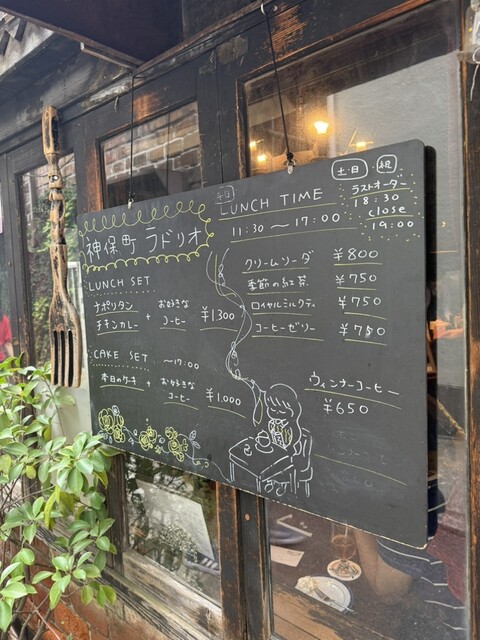 神保町 ラドリオ
LUNCH SET
ナポリタン
チキンカレー
+
お好きな
コーヒー
¥1300
CAKE SET 〜17:00
本日のケーキ
+
お好きな
コーヒー
¥1,000
平日
LUNCH TIME
11:30 〜 17:00
土・日・祝
ラストオーダー
18:30
close
19:00
クリームソーダ ¥800
季節の紅茶 ¥750
ロイヤルミルクティ ¥750
コーヒーゼリー ¥750
ウィンナーコーヒー
¥650